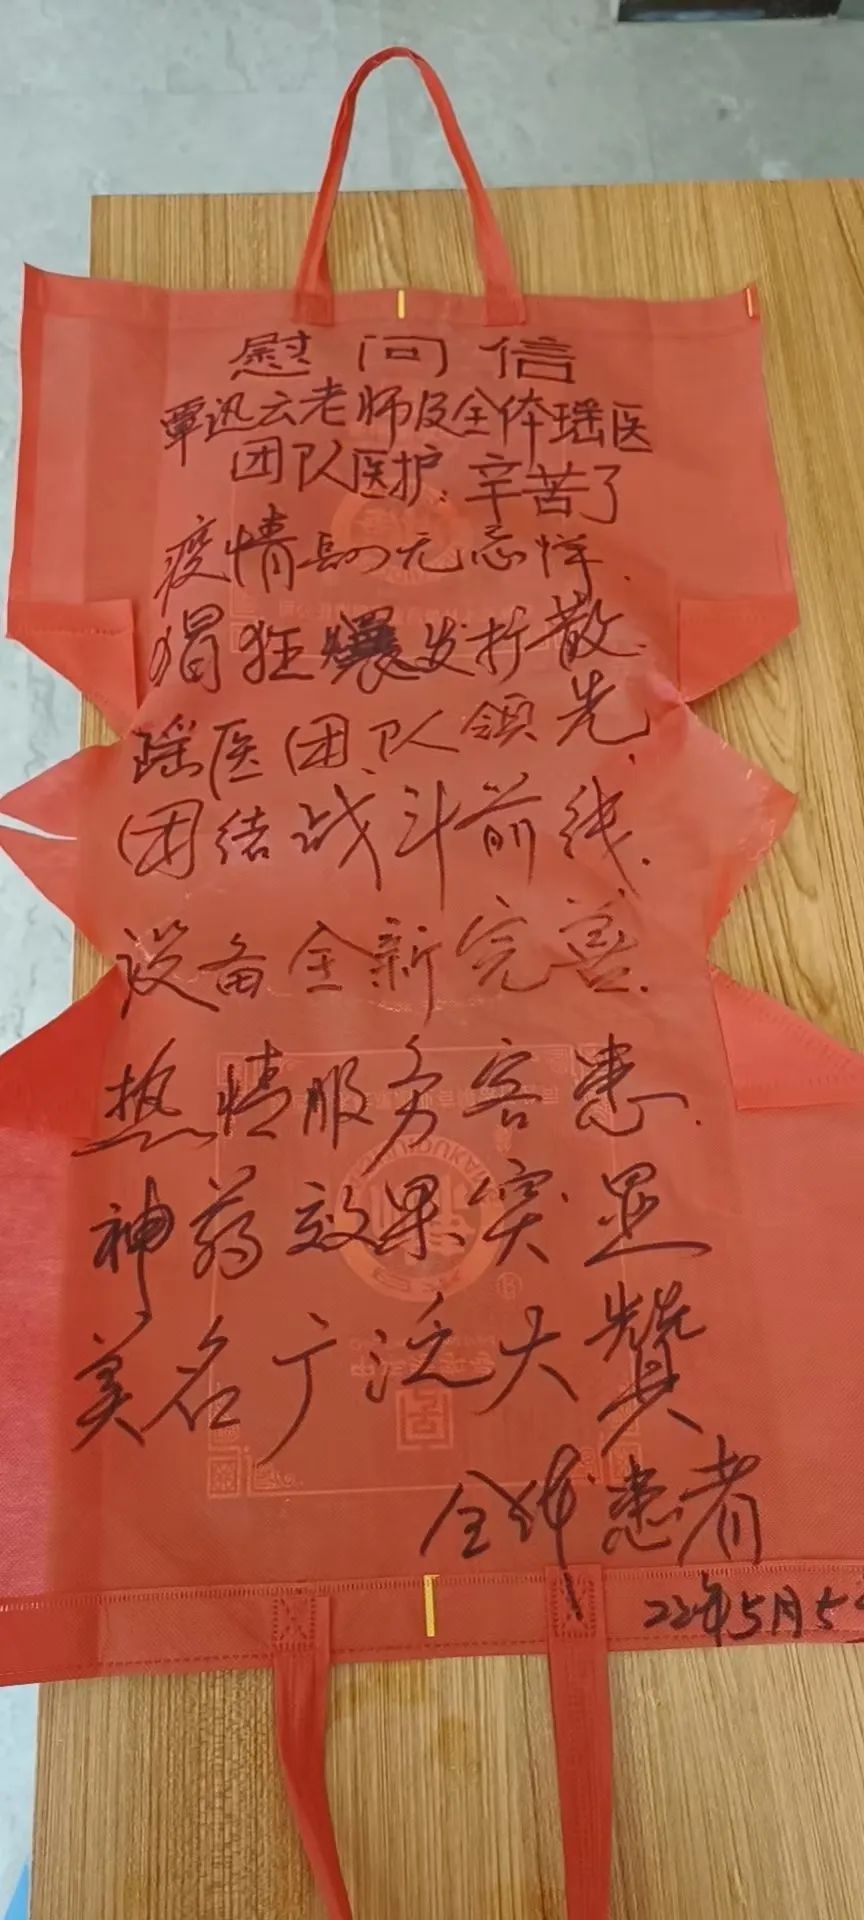 慰问信
覃迅云老师及全体瑶医
团队医护:辛苦了
疫情无忌惮.
猖狂爆发折散.
瑶医团队领先,
团结战斗前线.
设备全新完善.
热情服务客患.
神药效果突显
美名广泛大赞
全体患者
22年5月5